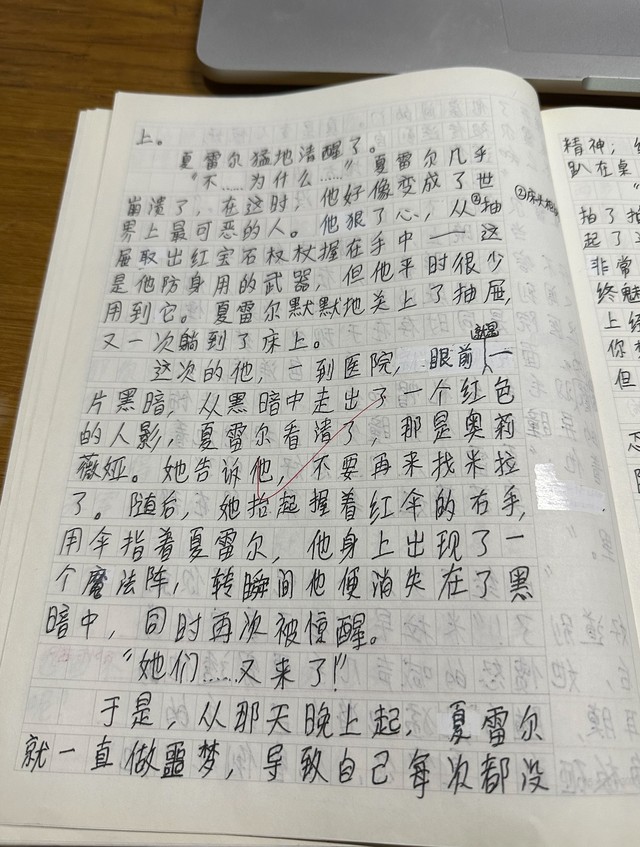 上。
夏雷尔猛地清醒了。
“不……为什么……”夏雷尔几乎
崩溃了，在这时，他好像变成了世
界上最可恶的人。他狠了心，从②抽
屉取出红宝石权杖握在手中——这
是他防身用的武器，但他平时很少
用到它。夏雷尔默默地关上了抽屉，
又一次躺到了床上。
这次的他，一到医院，眼前就是一
片黑暗，从黑暗中走出了一个红色
的人影，夏雷尔看清了，那是奥莉
薇娅。她告诉他，不要再来找米拉
了。随后，她抬起握着红伞的右手，
用伞指着夏雷尔，他身上出现了一
个魔法阵，转瞬间他便消失在了黑
暗中，同时再次被惊醒。
“她们……又来了！”
于是，从那天晚上起，夏雷尔
就一直做噩梦，导致自己每次都没
②床头柜
精神；
趴在桌
抽了抽
起了
非常
终魅
上经
你
但